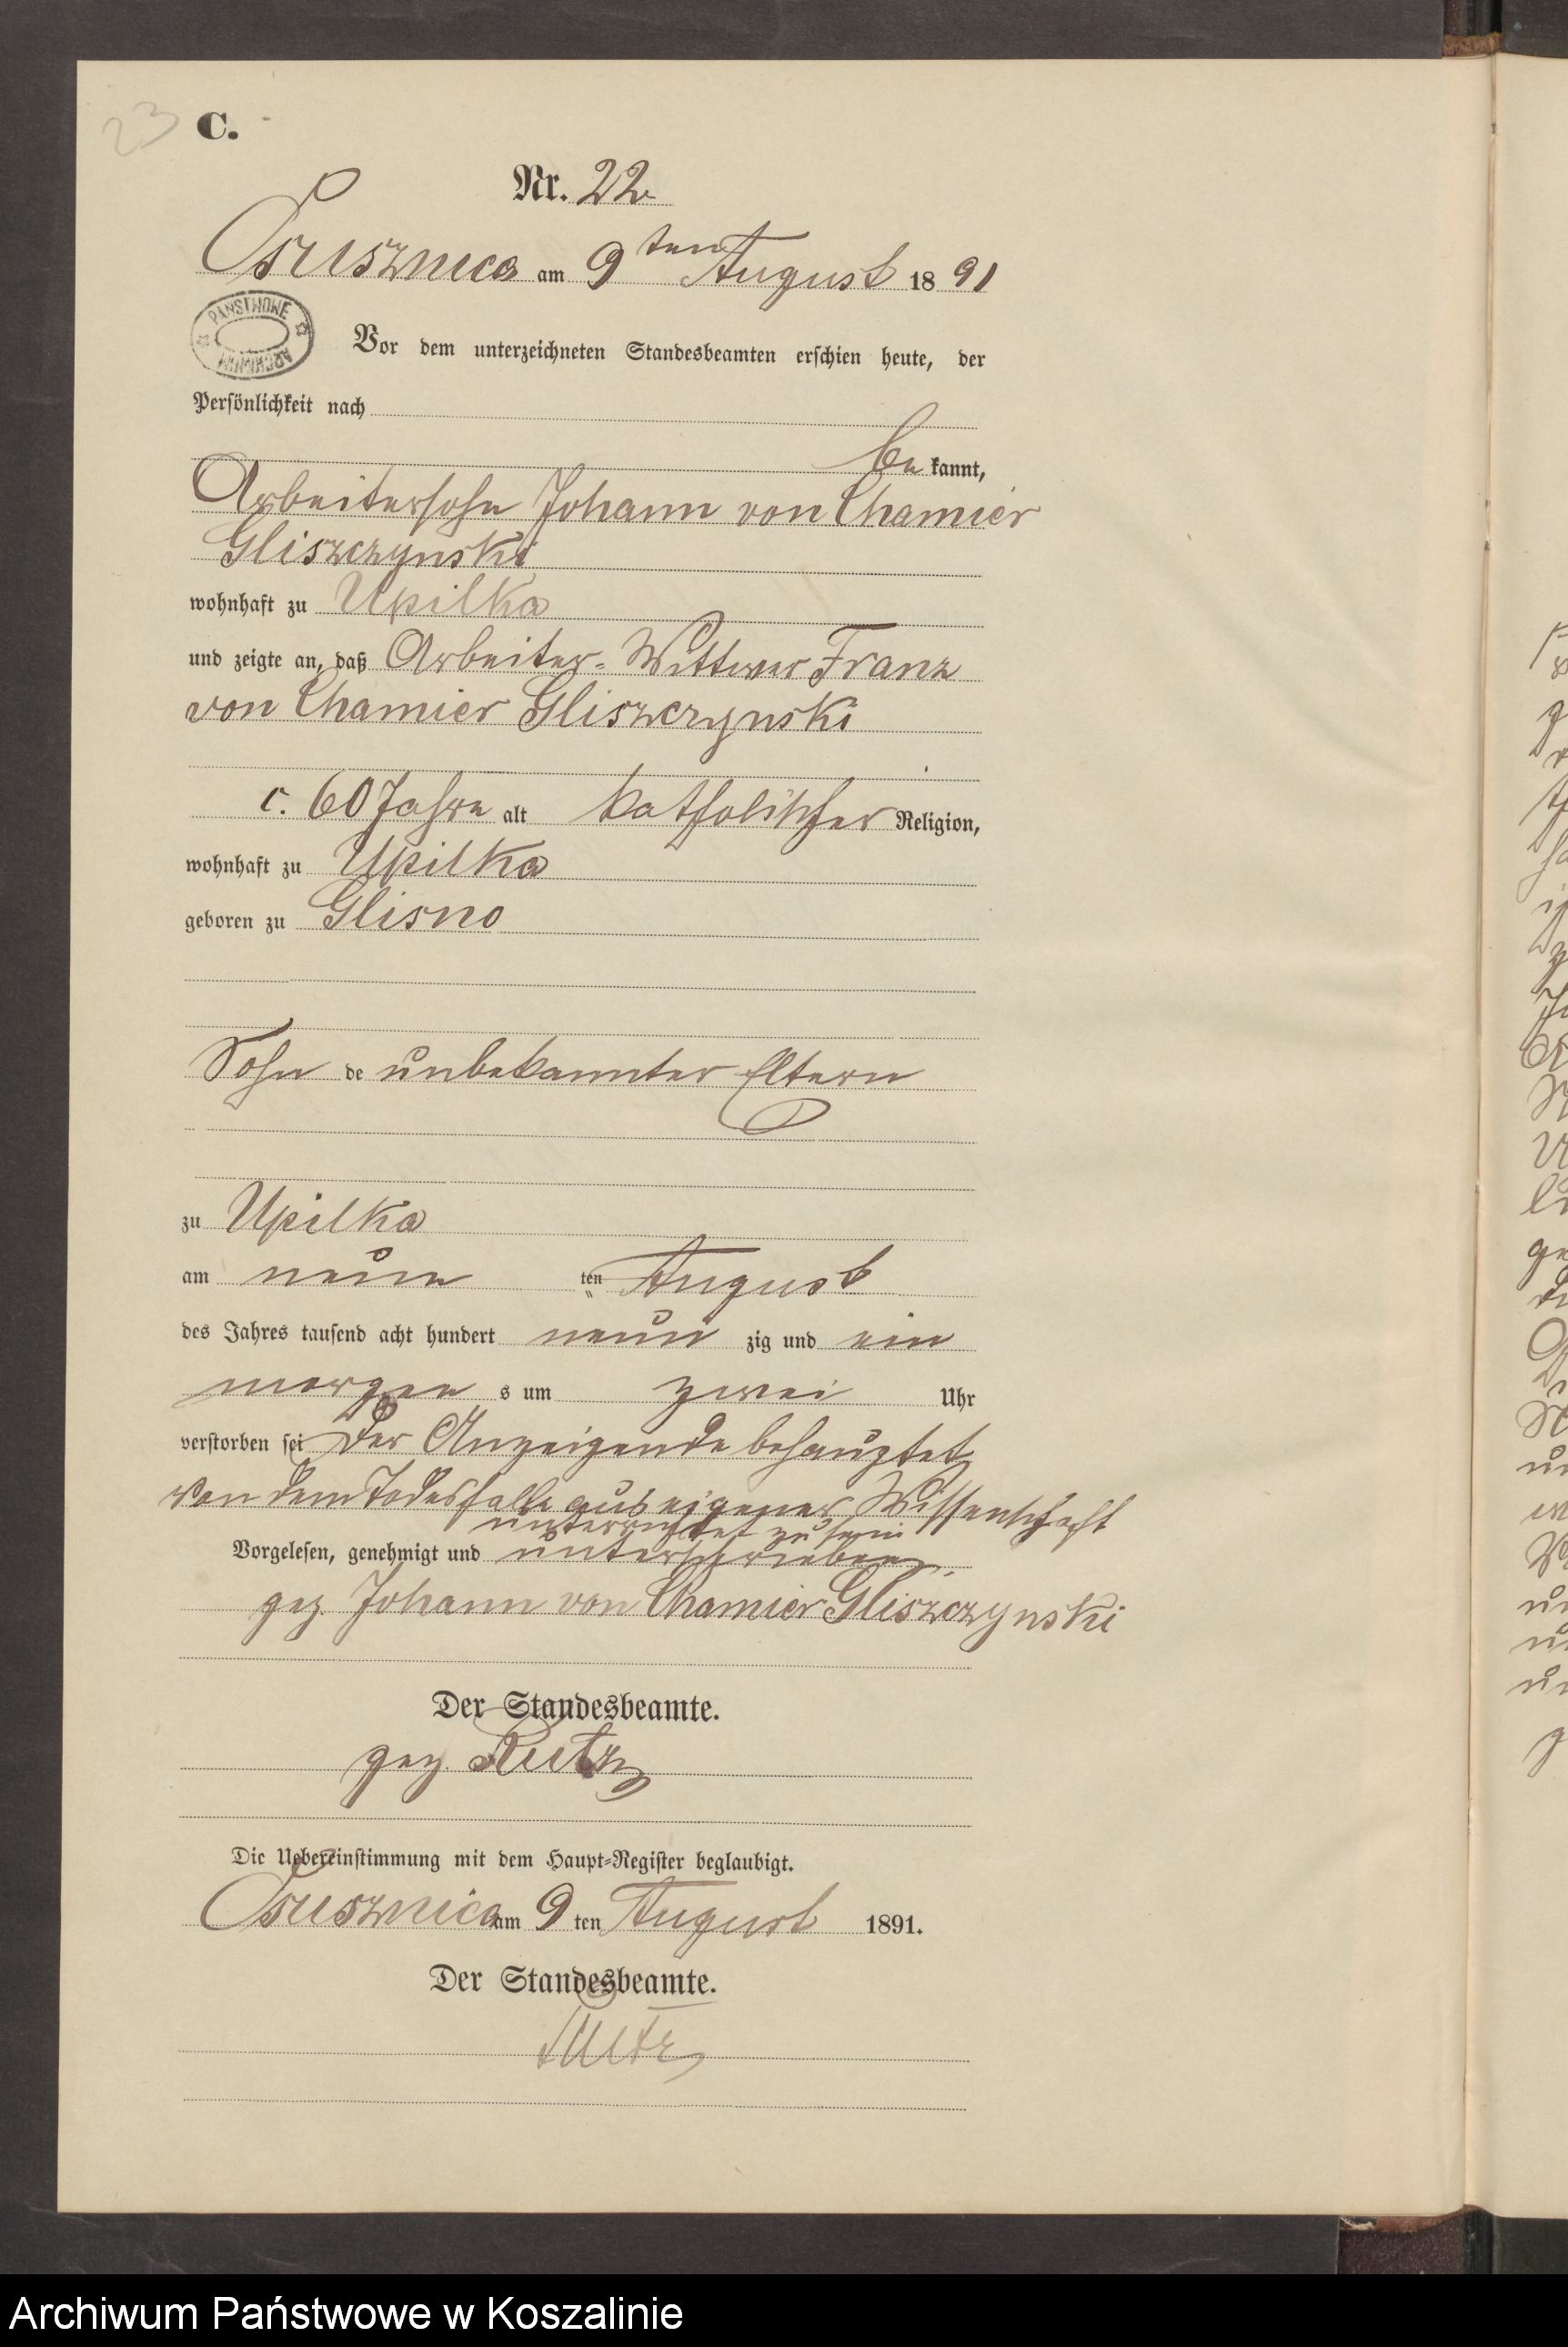 23
C.
Nr. 22
Osusznica am 9ten August 1891
PAŃSTWOWE ARCHIWUM
Vor dem unterzeichneten Standesbeamten erschien heute, der
Persönlichkeit nach
be kannt,
Arbeitersohn Johann von Chamier
Gliszczynski
wohnhaft zu Upilka
und zeigte an, daß Arbeiter-Wittwer Franz
von Chamier Gliszczynski
c. 60 Jahre alt katholischer Religion,
wohnhaft zu Upilka
geboren zu Glisno
Sohn de unbekannter Eltern
zu Upilka
am neun ten August
des Jahres tausend acht hundert neun zig und ein
morgen s um zwei Uhr
verstorben sei Der Anzeigende behauptet
von dem Todesfalle aus eigener Wissenschaft
unterrichtet zu sein
Vorgelesen, genehmigt und unterschrieben.
gez. Johann von Chamier Gliszczynski
Der Standesbeamte.
gez. Rutz
Die Uebereinstimmung mit dem Haupt-Register beglaubigt.
Osusznica am 9 ten August 1891.
Der Standesbeamte.
Rutz
Archiwum Państwowe w Koszalinie